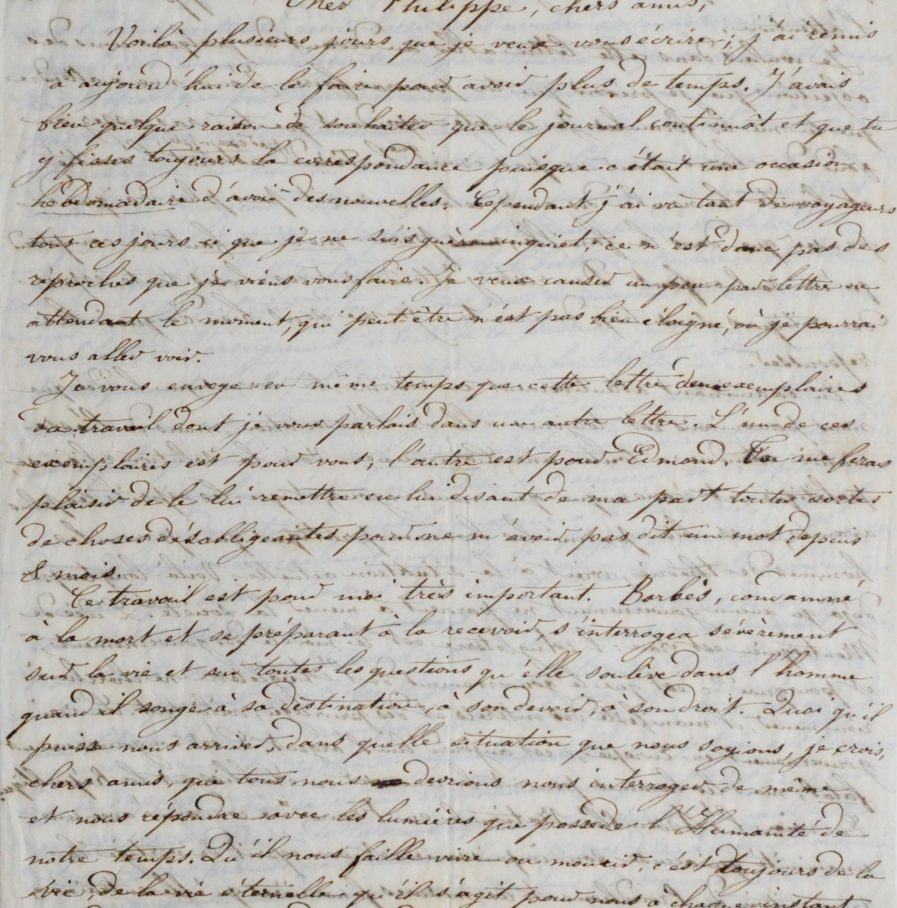 Cher Philippe, chers amis,
Voilà plusieurs jours que je veux vous écrire; j'ai remis
à aujourd'hui de le faire pour avoir plus de temps. J'avais
bien quelque raison de souhaiter que le journal continuât et que tu
y fisses toujours la correspondance puisque c'était une occasion
hebdomadaire d'avoir des nouvelles. Cependant j'ai vu tant de voyageurs
tous ces jours ci que je ne suis guère inquiet, ce n'est donc pas des
reproches que je viens vous faire. Je veux causer un peu par lettre en
attendant le moment, qui peut être n'est pas bien éloigné, où je pourrai
vous aller voir.
Je vous envoye en même temps que cette lettre deux exemplaires
du travail dont je vous parlais dans une autre lettre. L'un de ces
exemplaires est pour vous, l'autre est pour Edmond. Tu me feras
plaisir de le lui remettre en lui disant de ma part toutes sortes
de choses désobligeantes pour ne m'avoir pas dit un mot depuis
8 mois.
Ce travail est pour moi très important. Barbès, condamné
à la mort et se préparant à la recevoir, s'interrogea sévèrement
sur la vie et sur toutes les questions qu'elle soulève dans l'homme
quand il songe à sa destination, à son devoir, à son droit. Quoi qu'il
puisse nous arriver, dans quelle situation que nous soyions, je crois,
chers amis, que tous nous devrions nous interroger de même
et nous répondre avec les lumières que possède l'Humanité de
notre temps. Qu'il nous faille vivre ou mourir, c'est toujours de la
vie, de la vie éternelle qu'il s'agit pour nous à chaque instant